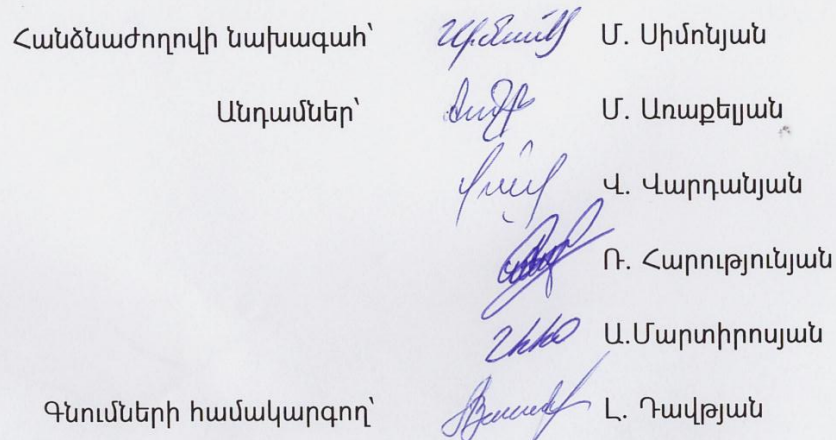 Հանձնաժողովի նախագահ՝ Մ. Սիմոնյան
Անդամներ՝ Մ. Առաքելյան
Վ. Վարդանյան
Ռ. Հարությունյան
Ա.Մարտիրոսյան
Գնումների համակարգող՝ Լ. Դավթյան